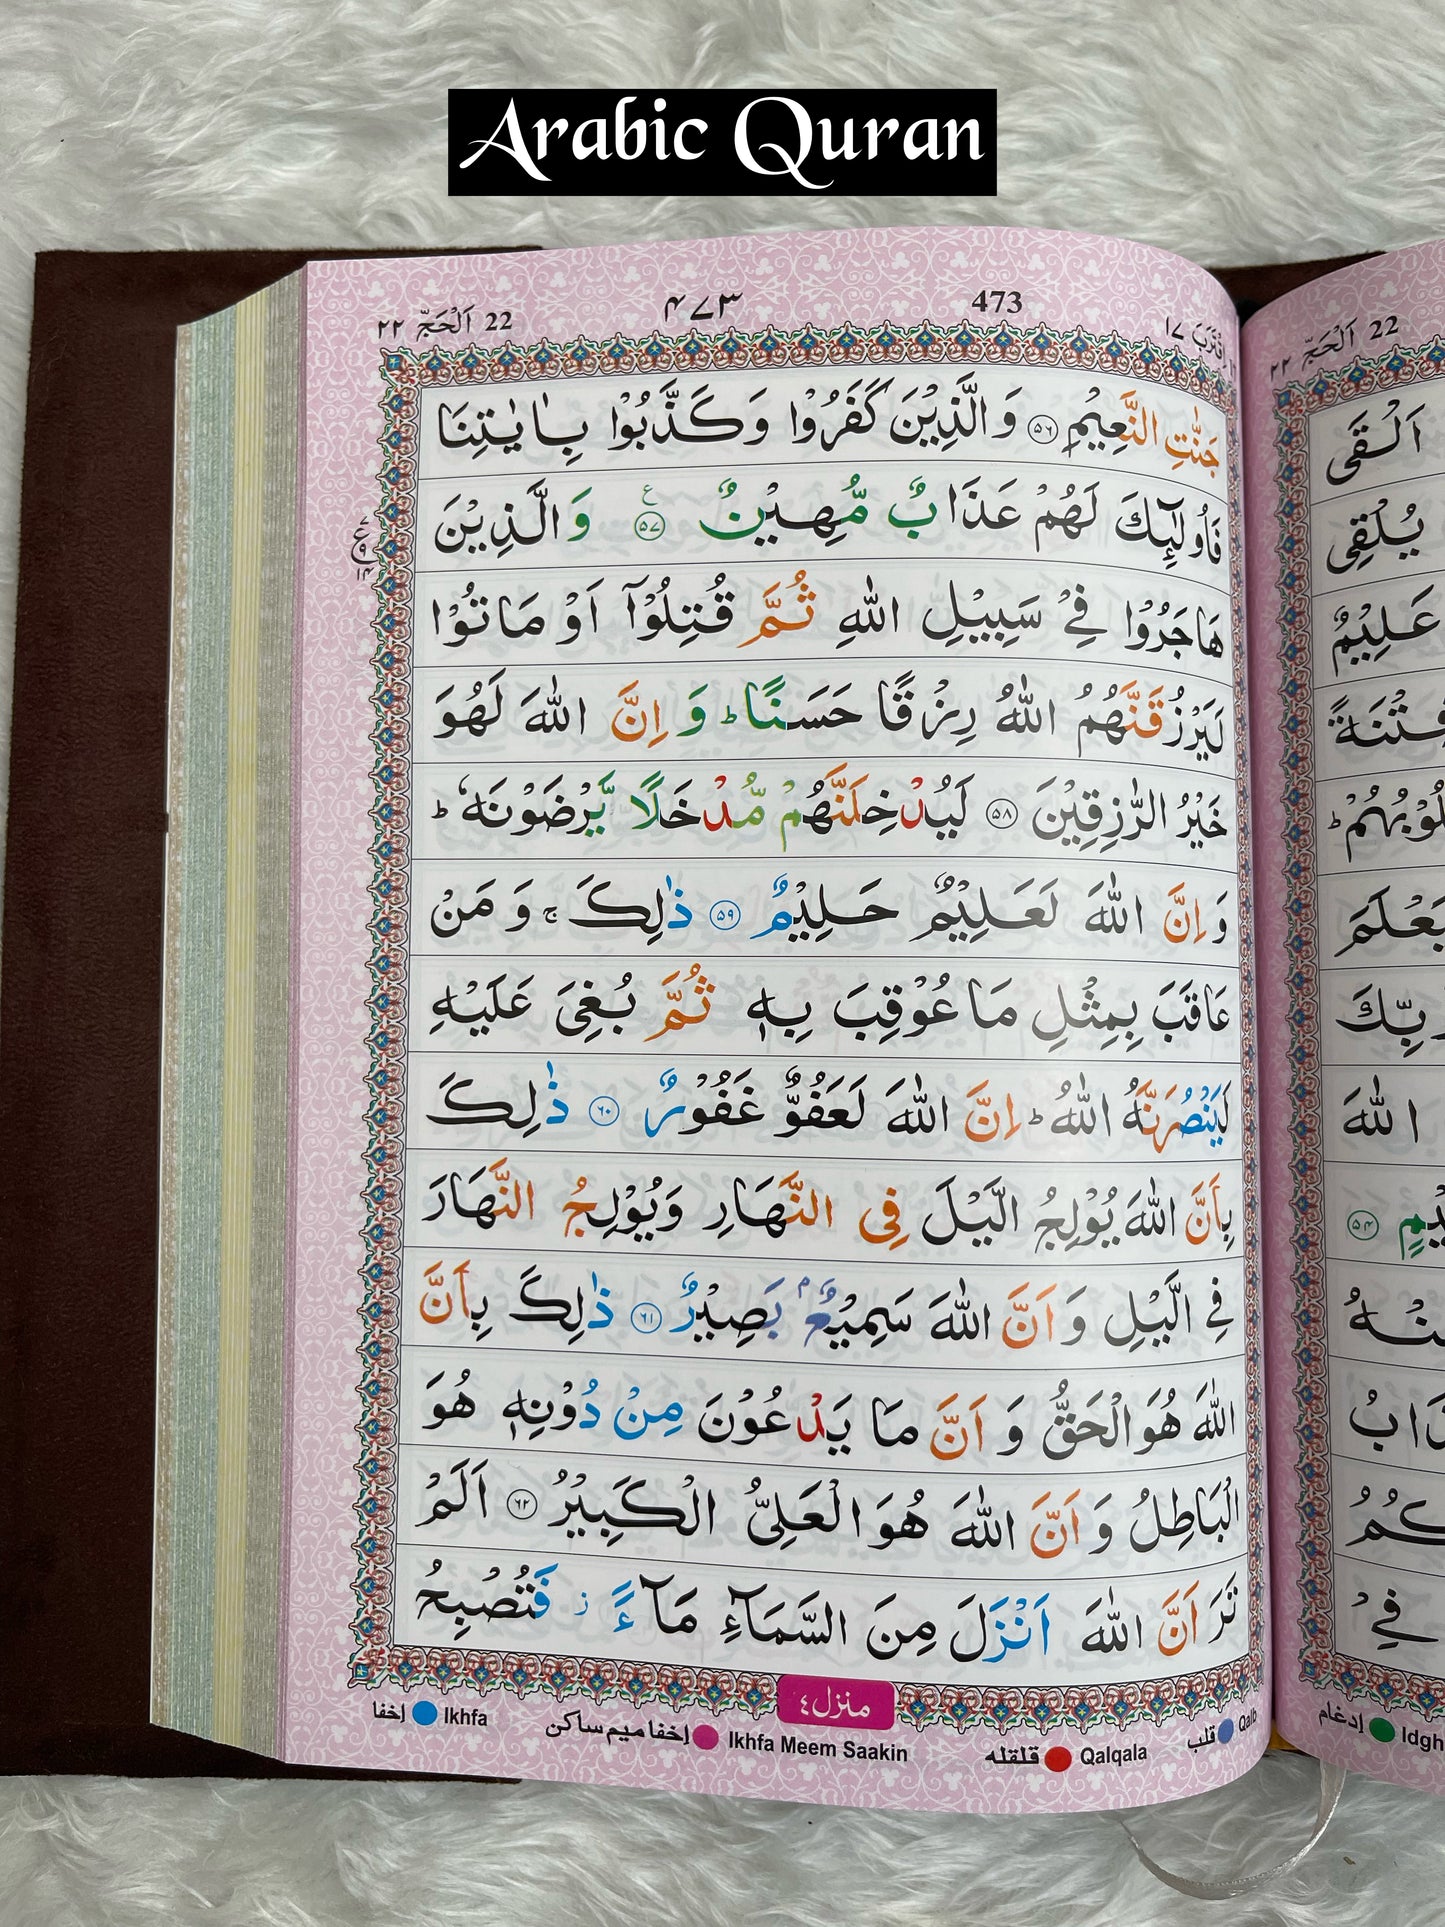 Arabic Quran
٢٢ اَلْحَجّ 22
٤٧٣
473
اِقْتَرَبَ ١٧
جَنّٰتِ النَّعِيْمِ ۵۶ وَالَّذِيْنَ كَفَرُوْا وَكَذَّبُوْا بِاٰيٰتِنَا
فَاُولٰٓئِكَ لَهُمْ عَذَابٌ مُّهِيْنٌ ۵۷ ع وَالَّذِيْنَ
هَاجَرُوْا فِيْ سَبِيْلِ اللّٰهِ ثُمَّ قُتِلُوْٓا اَوْ مَاتُوْا
لَيَرْزُقَنَّهُمُ اللّٰهُ رِزْقًا حَسَنًا ؕ وَاِنَّ اللّٰهَ لَهُوَ
خَيْرُ الرّٰزِقِيْنَ ۵۸ لَيُدْخِلَنَّهُمْ مُّدْخَلًا يَّرْضَوْنَهٗ ؕ
وَاِنَّ اللّٰهَ لَعَلِيْمٌ حَلِيْمٌ ۵۹ ذٰلِكَ ۚ وَمَنْ
عَاقَبَ بِمِثْلِ مَا عُوْقِبَ بِهٖ ثُمَّ بُغِيَ عَلَيْهِ
لَيَنْصُرَنَّهُ اللّٰهُ ؕ اِنَّ اللّٰهَ لَعَفُوٌّ غَفُوْرٌ ۶۰ ذٰلِكَ
بِاَنَّ اللّٰهَ يُوْلِجُ الَّيْلَ فِي النَّهَارِ وَيُوْلِجُ النَّهَارَ
فِي الَّيْلِ وَاَنَّ اللّٰهَ سَمِيْعٌۢ بَصِيْرٌ ۶۱ ذٰلِكَ بِاَنَّ
اللّٰهَ هُوَ الْحَقُّ وَاَنَّ مَا يَدْعُوْنَ مِنْ دُوْنِهٖ هُوَ
الْبَاطِلُ وَاَنَّ اللّٰهَ هُوَ الْعَلِيُّ الْكَبِيْرُ ۶۲ اَلَمْ
تَرَ اَنَّ اللّٰهَ اَنْزَلَ مِنَ السَّمَآءِ مَآءً ؗ فَتُصْبِحُ
منزل ٤
إخفا Ikhfa
إخفا ميم ساكن Ikhfa Meem Saakin
قلقله Qalqala
قلب Qalb
٢٢ اَلْحَجّ 22
اَلْقَى
يُلْقِى
عَلِيْمٌ
فِتْنَةً
بَعْلَمَ
رَبِّكَ
اللّٰهَ
۵۴
فِيْ
إدغام